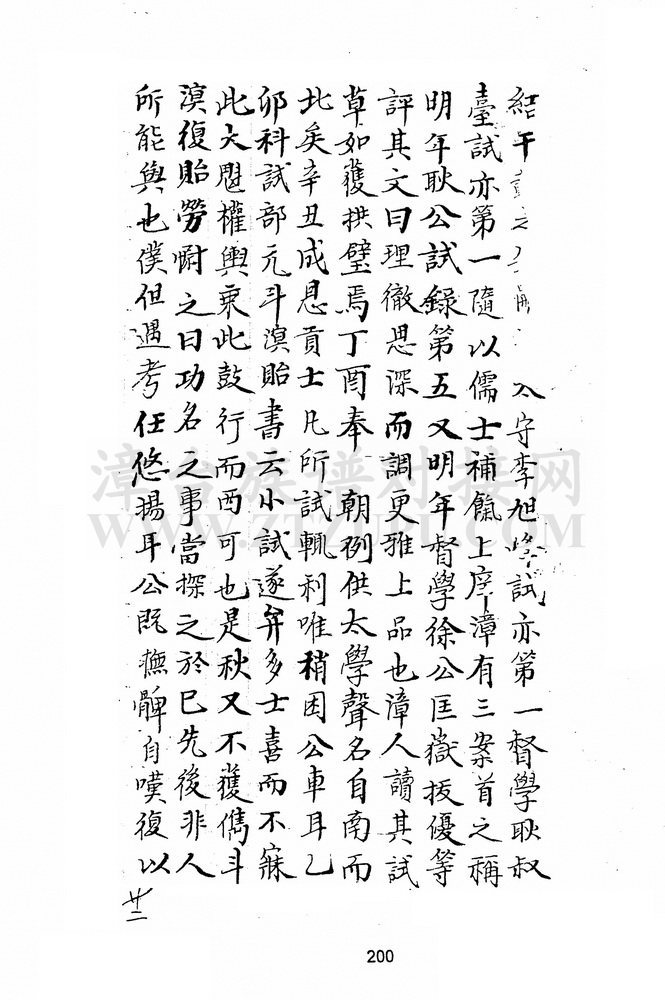 結干 太守李旭 試亦第一督學耿叔
臺試亦第一隨以儒士補餼上庠漳有三案首之稱
明年耿公試錄第五又明年督學徐公匡嶽拔優等
評其文曰理徹思深而調更雅上品也漳人讀其試
草如獲拱璧焉丁酉奉 朝例供太學聲名自南而
北矣辛丑成恩貢士凡所試輒利唯稍困公車耳乙
卯科試部元斗溟貽書云小試遂弁多士喜而不寐
此大魁權輿乘此鼓行而西可也是秋又不獲儁斗
溟復貽勞唁之曰功名之事當探之於巳先後非人
所能與也僕但遇考任悠揚耳公既撫髀自嘆復以
廿二
200
漳台族谱对接网
WWW.ZTZPU.COM